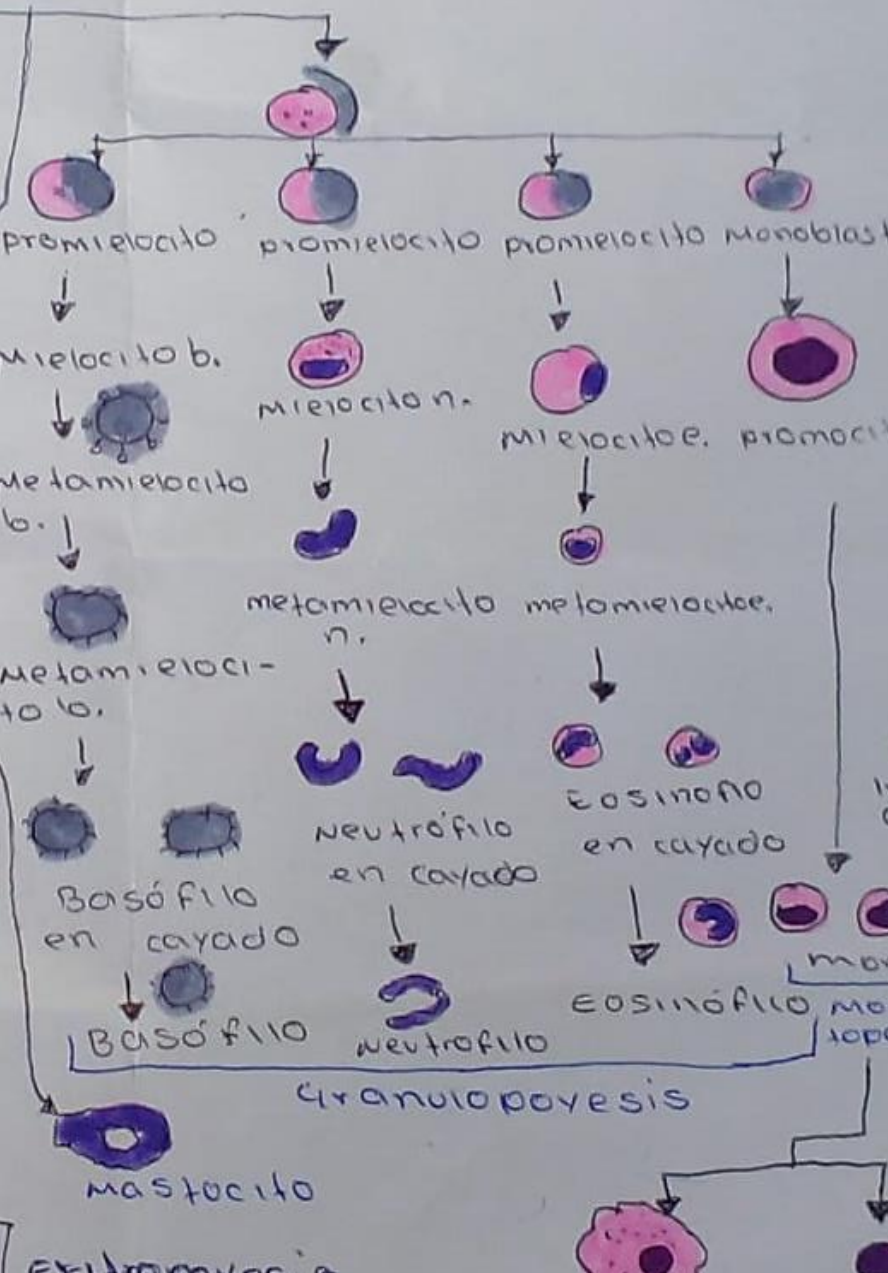 promielocito promielocito promielocito Monoblast
Mielocito b.
Mielocito n.
Mielocito e. promocit
Metamielocito
b.
metamielocito metamielocito e.
n.
Metamieloci-
to b.
Eosinofilo
en cayado
Neutrófilo
en cayado
Basófilo
en cayado
mon
Eosinófilo
mo
Basófilo
Neutrofilo
Granulopoyesis
Mastocito